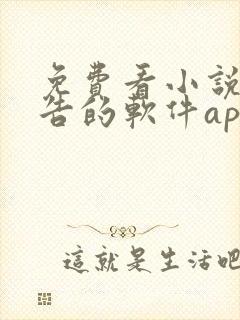 免費看小說
告的軟件ap
這就是生活吧